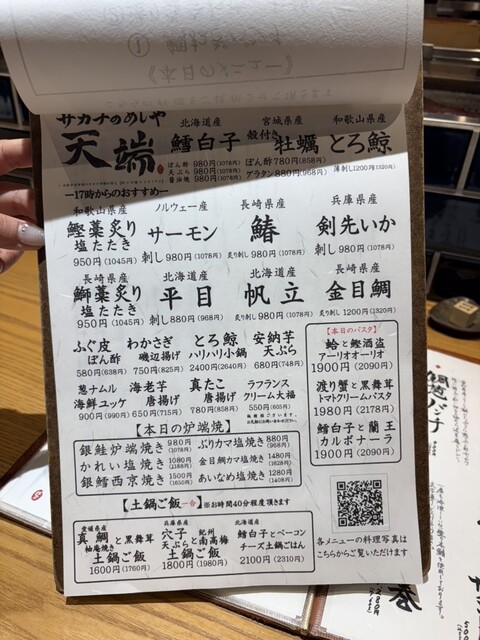 《本日のメニュー》
サカナのめしや
天端
北海道産
鱈白子
ぽん酢 980円(1078円)
天ぷら 980円(1078円)
醤油焼 980円(1078円)
宮城県産
殻付き牡蠣
ぽん酢780円(858円)
グラタン880円(968円)
和歌山県産
とろ鯨
薄刺し1200円(1320円)
ー17時からのおすすめー
和歌山県産
鰹藁炙り
塩たたき
950円(1045円)
ノルウェー産
サーモン
刺し 980円(1078円)
長崎県産
鰆
炙り刺し 980円(1078円)
兵庫県産
剣先いか
刺し 980円(1078円)
長崎県産
鰤藁炙り
塩たたき
950円(1045円)
北海道産
平目
刺し 880円(968円)
北海道産
帆立
炙り刺し 980円(1078円)
長崎県産
金目鯛
炙り刺し 1200円(1320円)
ふぐ皮
ぽん酢
580円(638円)
わかさぎ
磯辺揚げ
750円(825円)
とろ鯨
ハリハリ小鍋
2400円(2640円)
安納芋
天ぷら
680円(748円)
葱ナムル
海鮮ユッケ
900円(990円)
海老芋
唐揚げ
650円(715円)
真たこ
唐揚げ
780円(858円)
ラフランス
クリーム大福
550円(605円)
【本日のパスタ】
蛤と鰹酒盗
アーリオオーリオ
1900円(2090円)
渡り蟹と黒舞茸
トマトクリームパスタ
1980円(2178円)
鱈白子と蘭王
カルボナーラ
1900円(2090円)
【本日の炉端焼】
銀鮭炉端焼き 980円(1078円)
ぶりカマ塩焼き 880円(968円)
かれい塩焼き 1080円(1188円)
金目鯛カマ塩焼き 1480円(1628円)
銀鱈西京焼き 1500円(1650円)
あいなめ塩焼き 1280円(1408円)
【土鍋ご飯一合】※お時間40分程度頂きます
愛媛県産
真鯛
柚庵焼き
と黒舞茸
土鍋ご飯
1600円(1760円)
兵庫県産
穴子
天ぷら
と紀州南高梅
土鍋ご飯
1800円(1980円)
北海道産
鱈白子とベーコン
チーズ土鍋ごはん
2100円(2310円)
各メニューの料理写真は
こちらからご覧いただけます